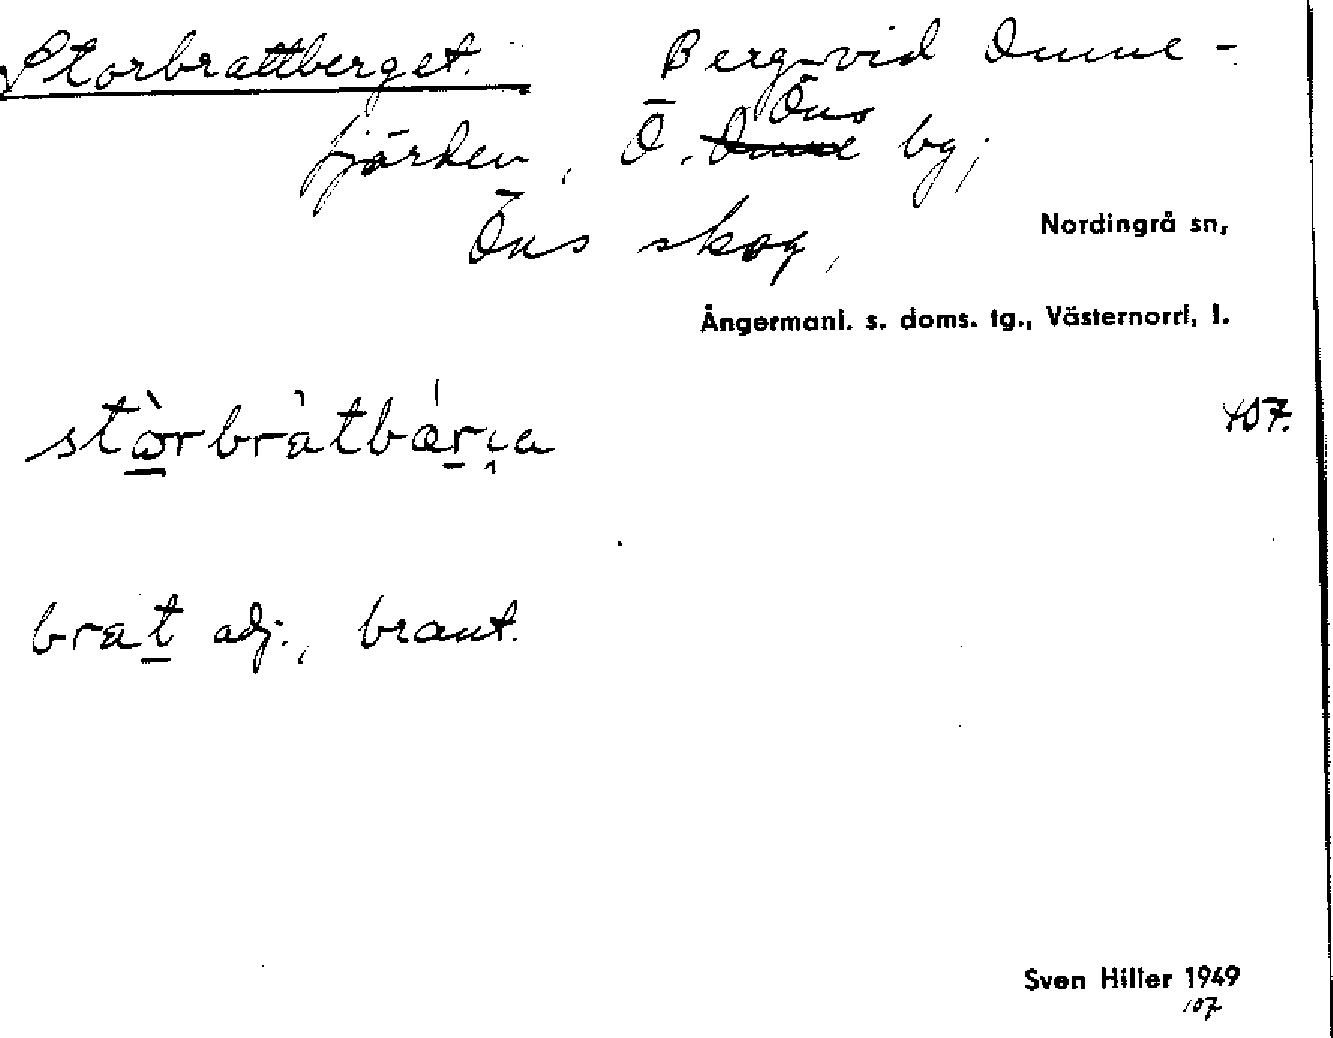 Storbrattberget. Berg vid Omne-
fjärden, Ö. Öns bg;
Öns skog,
Nordingrå sn,
Ångermanl. s. doms. tg., Västernorrl, l.
107.
stòrbràtbárɕa
brat adj., brant.
Sven Hiller 1949
107